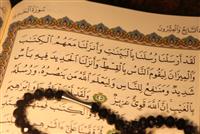 سُورَةُ الحَدِيدِ
السَّابِعُ وَالعِشْرُونَ
لَقَدْ أَرْسَلْنَا رُسُلَنَا بِالْبَيِّنَٰتِ وَأَنزَلْنَا مَعَهُمُ الْكِتَٰبَ
وَالْمِيزَانَ لِيَقُومَ النَّاسُ بِالْقِسْطِ وَأَنزَلْنَا الْحَدِيدَ فِيهِ بَأْسٌ
شَدِيدٌ وَمَنَٰفِعُ لِلنَّاسِ وَلِيَعْلَمَ اللَّهُ مَن يَنصُرُهُۥ وَرُسُلَهُۥ
بِالْغَيْبِ إِنَّ اللَّهَ قَوِيٌّ عَزِيزٌ ٢٥